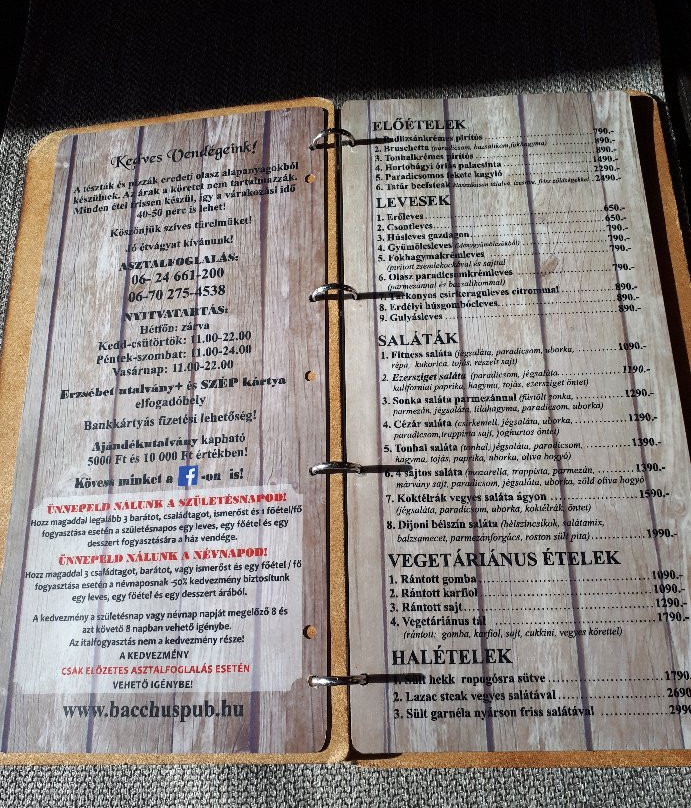 Kedves Vendégeink!
A tészták és pizzák eredeti olasz alapanyagokból
készülnek. Az árak a köretet nem tartalmazzák.
Minden étel frissen készül, így a várakozási idő
40-50 perc is lehet!
Köszönjük szíves türelmüket!
Jó étvágyat kívánunk!
ASZTALFOGLALÁS:
06- 24 661-200
06-70 275-4538
NYITVATARTÁS:
Hétfőn: zárva
Kedd-csütörtök: 11.00-22.00
Péntek-szombat: 11.00-24.00
Vasárnap: 11.00-22.00
Erzsébet utalvány+ és SZÉP kártya
elfogadóhely
Bankkártyás fizetési lehetőség!
Ajándékutalvány kapható
5000 Ft és 10 000 Ft értékben!
Kövess minket a f -on is!
ÜNNEPELD NÁLUNK A SZÜLETÉSNAPOD!
Hozz magaddal legalább 3 barátot, családtagot, ismerőst és 1 főétel/fő
fogyasztása esetén a születésnapos egy leves, egy főétel és egy
desszert fogyasztására a ház vendége.
ÜNNEPELD NÁLUNK A NÉVNAPOD!
Hozz magaddal 3 családtagot, barátot, vagy ismerőst és egy főétel / fő
fogyasztása esetén a névnaposnak -50% kedvezmény biztosítunk
egy leves, egy főétel és egy desszert árából.
A kedvezmény a születésnap vagy névnap napját megelőző 8 és
azt követő 8 napban vehető igénybe.
Az italfogyasztás nem a kedvezmény része!
A KEDVEZMÉNY
CSAK ELŐZETES ASZTALFOGLALÁS ESETÉN
VEHETŐ IGÉNYBE!
www.bacchuspub.hu
ELŐÉTELEK
1. Padlizsánkrémes pirítós 790.-
2. Bruschetta (paradicsom, bazsalikom, fokhagyma) 890.-
3. Tonhalkrémes pirítós 890.-
4. Hortobágyi óriás palacsinta 1490.-
5. Paradicsomos fekete kagyló 2290.-
6. Tatár beefsteak 2490.-
LEVESEK
1. Erőleves 650.-
2. Csontleves 650.-
3. Húsleves gazdagon 790.-
4. Gyümölcsleves 790.-
5. Fokhagymakrémleves 790.-
(pirított zsemlekockával és sajttal
6. Olasz paradicsomkrémleves 790.-
(parmezánnal és bazsalikommal)
7. Tárkonyos csirkeraguleves citrommal 890.-
8. Erdélyi húsgombócleves 890.-
9. Gulyásleves 890.-
SALÁTÁK
1. Fitness saláta (jégsaláta, paradicsom, uborka, 1090.-
répa, kukorica, tojás, reszelt sajt)
2. Ezersziget saláta (paradicsom, jégsaláta, 1190.-
kaliforniai paprika, hagyma, tojás, ezersziget öntet)
3. Sonka saláta parmezánnal (füstölt sonka, 1290.-
parmezán, jégsaláta, lilahagyma, paradicsom, uborka)
4. Cézár saláta (csirkemell, jégsaláta, uborka, 1290.-
paradicsom, trappista sajt, joghurtos öntet)
5. Tonhal saláta (tonhal, jégsaláta, paradicsom, 1390.-
hagyma, tojás, paprika, uborka, oliva bogyó)
6. 4 sajtos saláta (mozarella, trappista, parmezán, 1390.-
márvány sajt, paradicsom, jégsaláta, uborka, zöld oliva bogyó)
7. Koktélrák vegyes saláta ágyon 1590.-
(jégsaláta, paradicsom, uborka, koktélrák, öntet)
8. Dijoni bélszín saláta (bélszíncsíkok, salátamix,
balzsamecet, parmezánforgács, roston sült pita) 1990.-
VEGETÁRIÁNUS ÉTELEK
1. Rántott gomba 1090.-
2. Rántott karfiol 1090.-
3. Rántott sajt 1290.-
4. Vegetáriánus tál 1790.-
(rántott: gomba, karfiol, sajt, cukkini, vegyes körettel)
HALÉTELEK
1. Sült hekk ropogósra sütve 1790.
2. Lazac steak vegyes salátával 2690
3. Sült garnéla nyárson friss salátával 2990